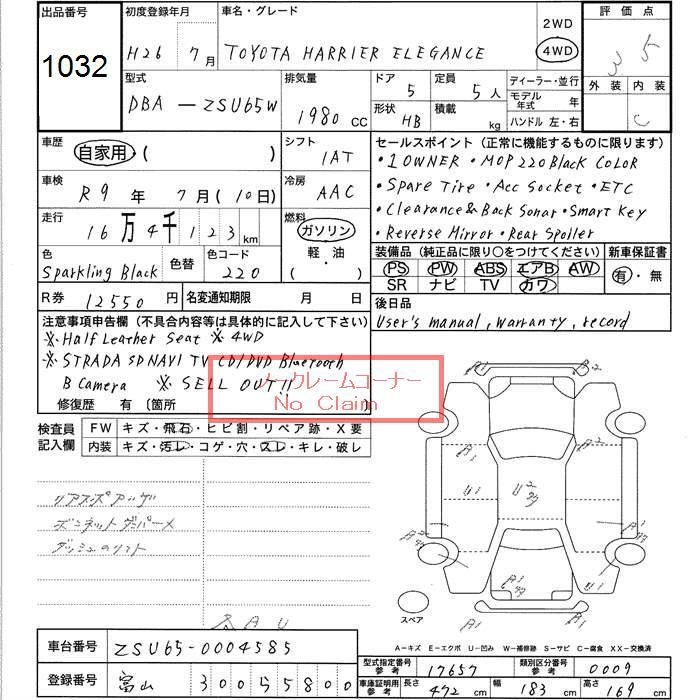 出品番号 初度登録年月 車名・グレード 2WD 評価点
1032 H26 7月 TOYOTA HARRIER ELEGANCE 4WD 3 5
外装 内装
C
型式 排気量 ドア 定員 ディーラー・並行
DBA-ZSU65W 1980 CC 5 5人 モデル年式 年
形状 積載 ハンドル 左・右
HB kg
車歴 自家用・( ) シフト 1AT
セールスポイント (正常に機能するものに限ります)
・1 OWNER ・MOP 220 Black COLOR
・Spare Tire ・Acc Socket ・ETC
・Clearance & Back Sonar ・Smart Key
・Reverse Mirror ・Rear Spoiler
車検 R9年 7月 (10日) 冷房 AAC
走行 16万4千123km 燃料 ガソリン
軽・油
( )
色 色替 色コード
Sparkling Black 220
装備品 (純正品に限り○をつけてください) 新車保証書
PS PW ABS エアB AW 有・無
SR ナビ TV カワ
R券 12550円 名変通知期限 月 日
後日品
User's manual, warranty, record
注意事項申告欄 (不具合内容等は具体的に記入して下さい)
※Half Leather Seat ※4WD
※STRADA SD NAVI TV CD/DVD Bluetooth
B Camera ※SELL OUT!!
ノークレームコーナー
No Claim
修復歴 有 〔箇所
検査員記入欄 FW キズ・飛石・ヒビ割・リペア跡・X要
内装 キズ・汚レ・コゲ・穴・スレ・キレ・破レ
A2
A1 A1
U2
A1
U1
A2
スペア
A-キズ E-エクボ U-凹み W-補修跡 S-サビ C-腐食 XX-交換済
車台番号 ZSU65-0004585
登録番号 富山 300 55800
型式指定番号 参考 17657 類別区分番号 参考 0009
車庫証明用 参考 長さ 472cm 幅 183cm 高さ 169cm